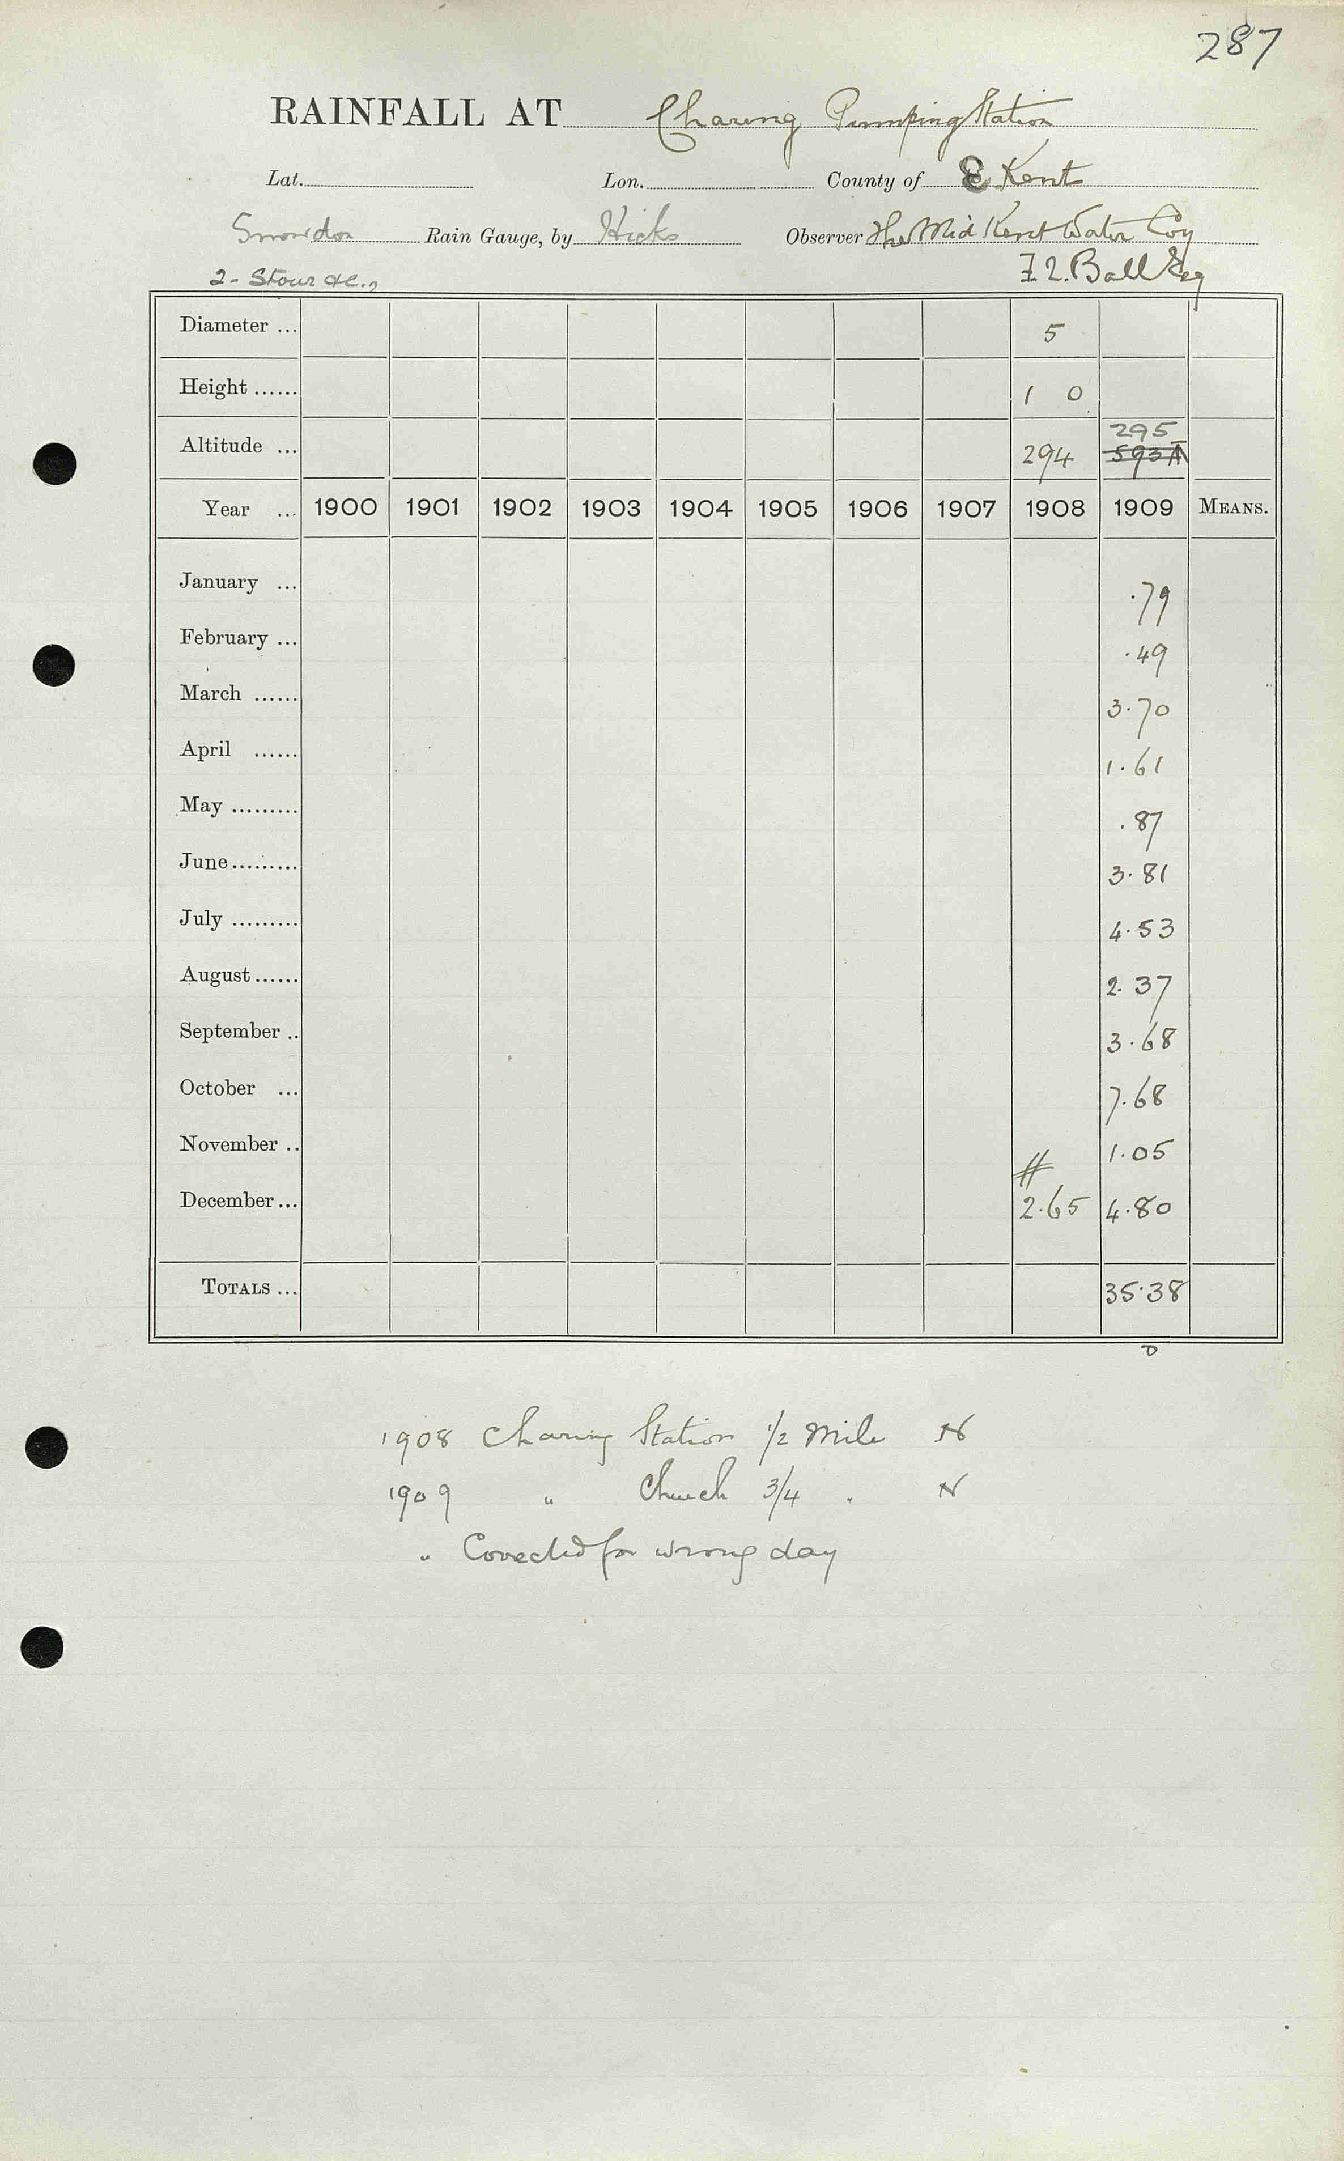 287
RAINFALL AT Charing Pumping Station
Lat. Lon. County of E Kent
Snowdon Rain Gauge, by Hicks Observer The Mid Kent Water Coy
2 - Stour &c., Ball Esq
Diameter ... 5
Height ...... 1 0
295
Altitude ... 294 593
Year ... 1900 1901 1902 1903 1904 1905 1906 1907 1908 1909 MEANS.
January ... .79
February ... .49
March ...... 3.70
April ...... 1.61
May ......... .87
June ......... 3.81
July ......... 4.53
August ...... 2.37
September .. 3.68
October ... 7.68
November .. # 1.05
December ... 2.65 4.80
TOTALS ... 35.38
D
1908 Charing Station 1/2 Mile N
1909 " Church 3/4 " N
" Corrected for wrong day